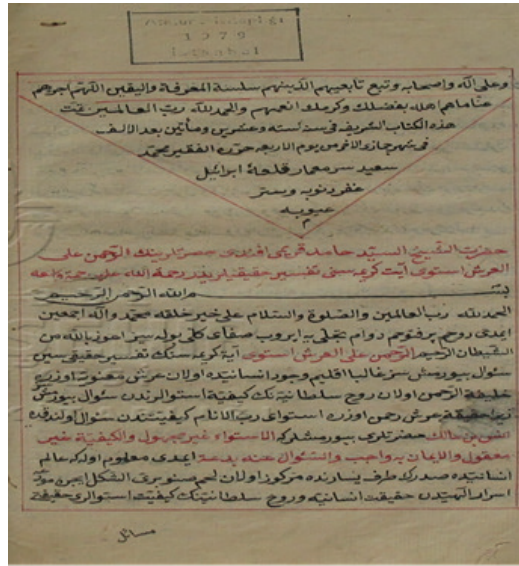 1979
İstanbul
وعلى آله واصحابه وتبع تابعيهم الذينهم سلسة المعرفة واليقين اللهم اجرهم
عنا ماهم اهله بفضلك وكرمك انعمهم والحمد لله رب العالمين تمت
هذه الكتاب الشريف فى سنه سته وعشرين ومأتين بعد الالف
فى شهر جمازى الاخر من يوم الاربعه حرره الفقير محمد
سعيد سر معمار قلعۀ ابرائيل
غفر ذنوبه وستر
عيوبه
م
حضرت الشيخ السيد حامد قريمى افندى حضرتلرينك الرحمن على
العرش استوى آيت كريمه سنى تفسير حقيقيلريدر رحمة الله عليه رحمة واسعه
بسم الله الرحمن الرحيم
الحمد لله رب العالمين والصلوة والسلام على خير خلقه محمد وآله اجمعين
ايمدى روحم پر فتوحم دوام تجلى يه ايروب صفاى كلى بوله سز اعوذ بالله من
الشيطان الرجيم الرحمن على العرش استوى آية كريمه سنك تفسير حقيقى سين
سئوال بيورمش سز غالبا اقليم وجود انسانيده اولان عرش معنويه اوزره
خليفة الرحمن اولان روح سلطانينك كيفيت استوالرندن سئوال بيوردى
زيرا حقيقة عرش رحمن اوزره استواى رب الانام كيفيتندن سئوال اولندقده
انس بن مالك حضرتلرى بيورمشلر كه الاستواء غير مجهول والكيفية غير
معقول والايمان به واجب والسئوال عنه بدعة ايمدى معلوم اوله كه عالم
انسانيده صدرك طرف يسارنده مركوز اولان لحم صنوبرى الشكل ايچره مودع
اسرار الهيدن حقيقت انسانيه وروح سلطانينك كيفيت استوالرى حقيقة
مسائل